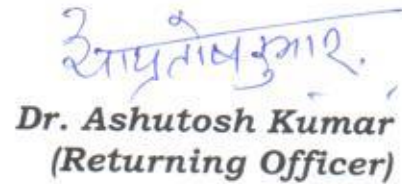 आशुतोष कुमार.
Dr. Ashutosh Kumar
(Returning Officer)